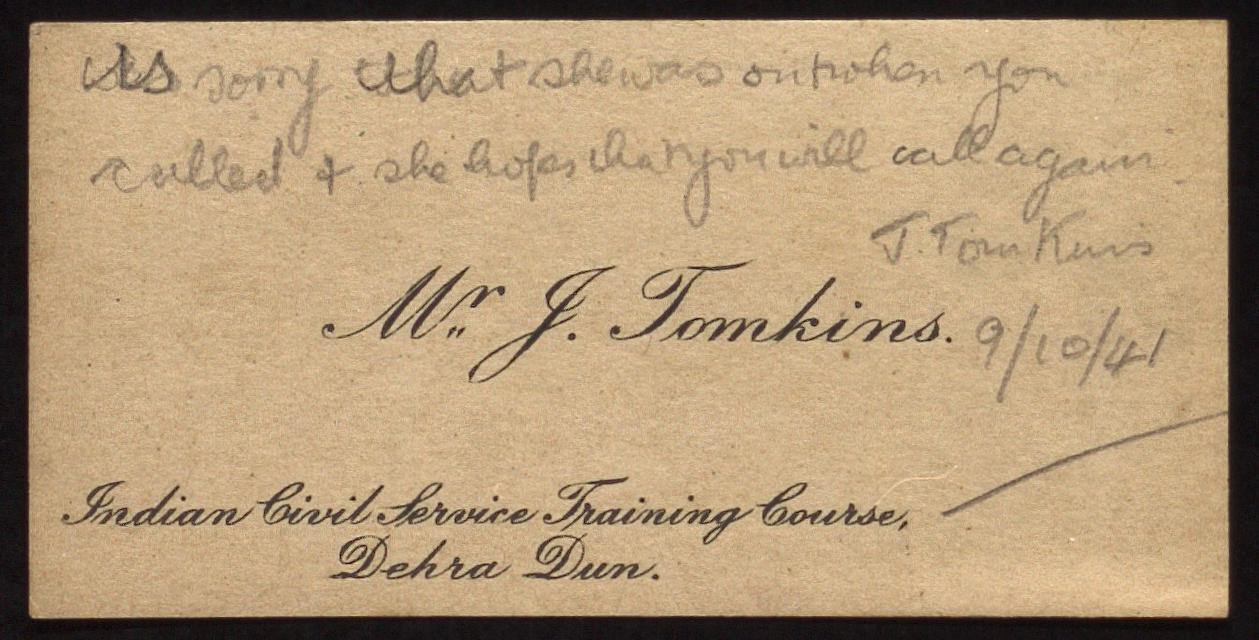 is sorry that she was out when you
called & she hopes that you will call again.
J. Tomkins
Mr. J. Tomkins.
9/10/41
Indian Civil Service Training Course,
Dehra Dun.